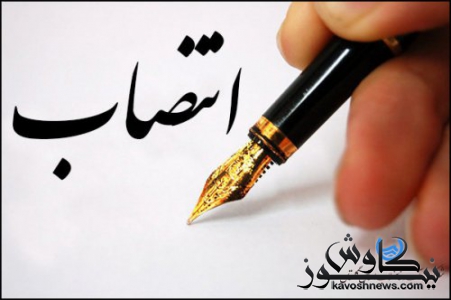 انتصاب
کاوش نیوز
kavoshnews.com